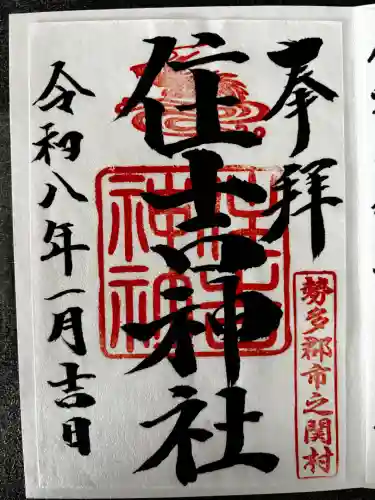 奉拝
勢多郡市之関村
住吉神社
令和八年一月十一日